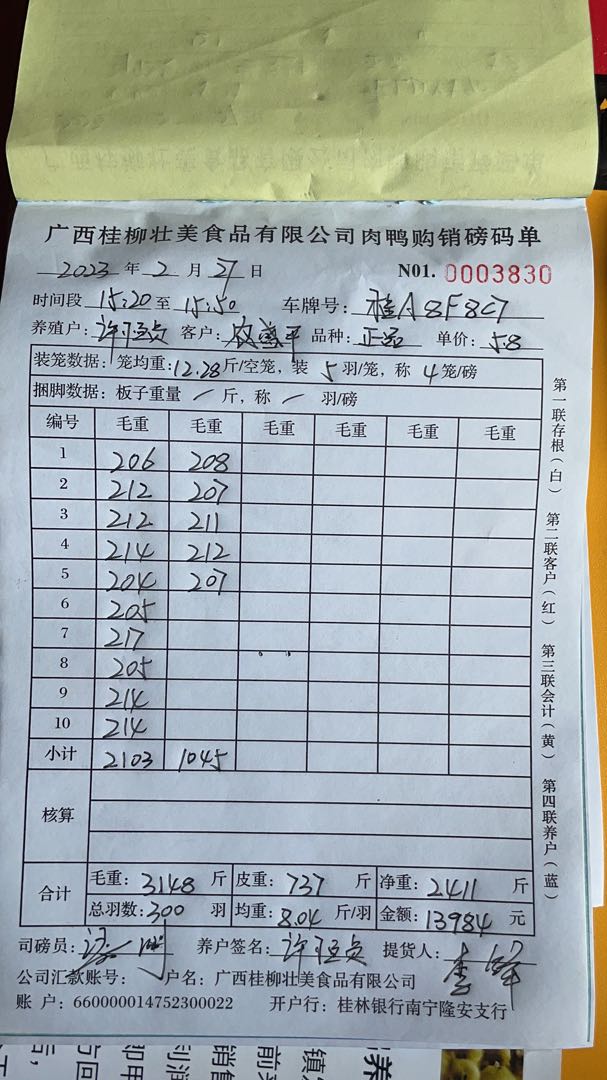 广西桂柳壮美食品有限公司肉鸭购销磅码单
2023 年 2 月 27 日 N01. 0003830
时间段 15:20 至 15:50 车牌号: 桂A8F8C7
养殖户: 许 客户: 品种: 正品 单价: 5.8
装笼数据: 笼均重: 12.28 斤/空笼, 装 5 羽/笼, 称 4 笼/磅
捆脚数据: 板子重量 / 斤, 称 / 羽/磅
编号 毛重 毛重 毛重 毛重 毛重 毛重
1 206 208
2 212 207
3 212 211
4 214 212
5 204 207
6 205
7 217
8 205
9 214
10 214
小计 2103 1045
核算
合计 毛重: 3148 斤 皮重: 737 斤 净重: 2411 斤
总羽数: 300 羽 均重: 8.04 斤/羽 金额: 13984 元
司磅员: 养户签名: 许 提货人: 李
公司汇款账号: 户名: 广西桂柳壮美食品有限公司
账 户: 660000014752300022 开户行: 桂林银行南宁隆安支行
第一联存根(白) 第二联客户(红) 第三联会计(黄) 第四联养户(蓝)